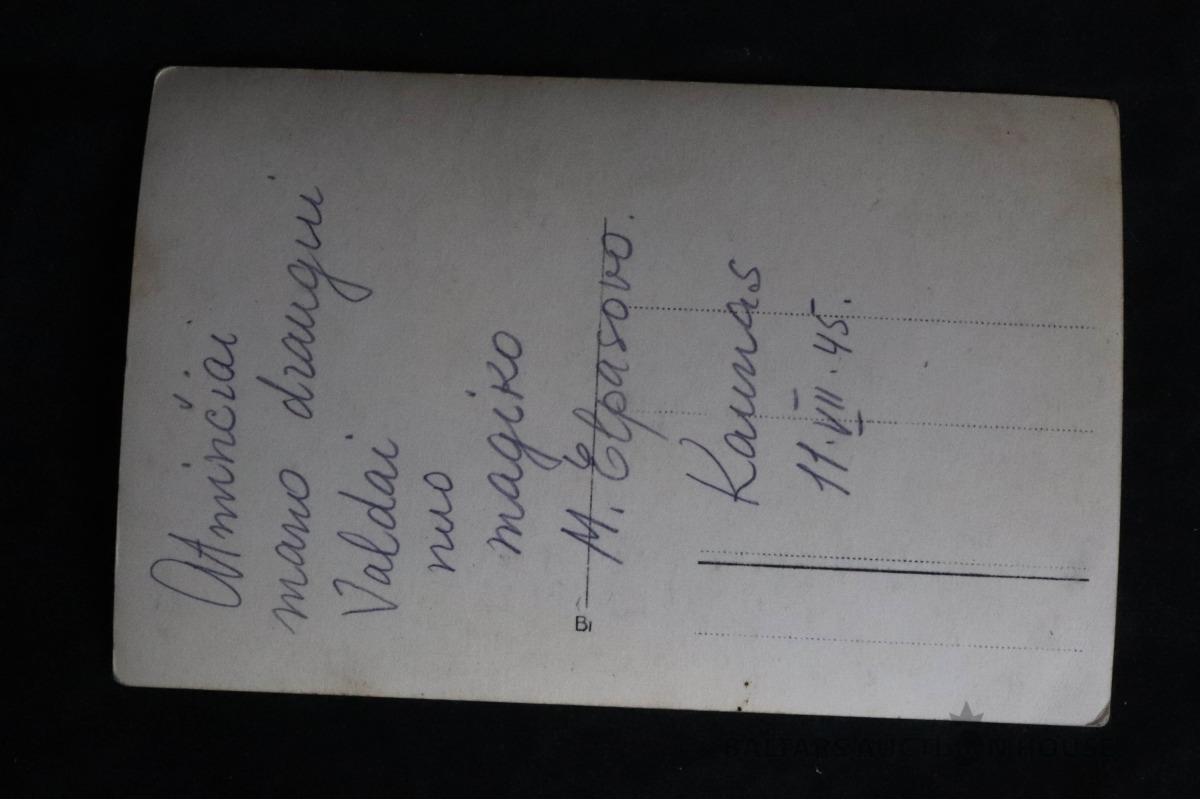 Atminčiai
mano draugui
Valdai
nuo
magiko
M. Elpasovo.
Kaunas
11. VII. 45.
Bi
BALTARS AUCTION HOUSE